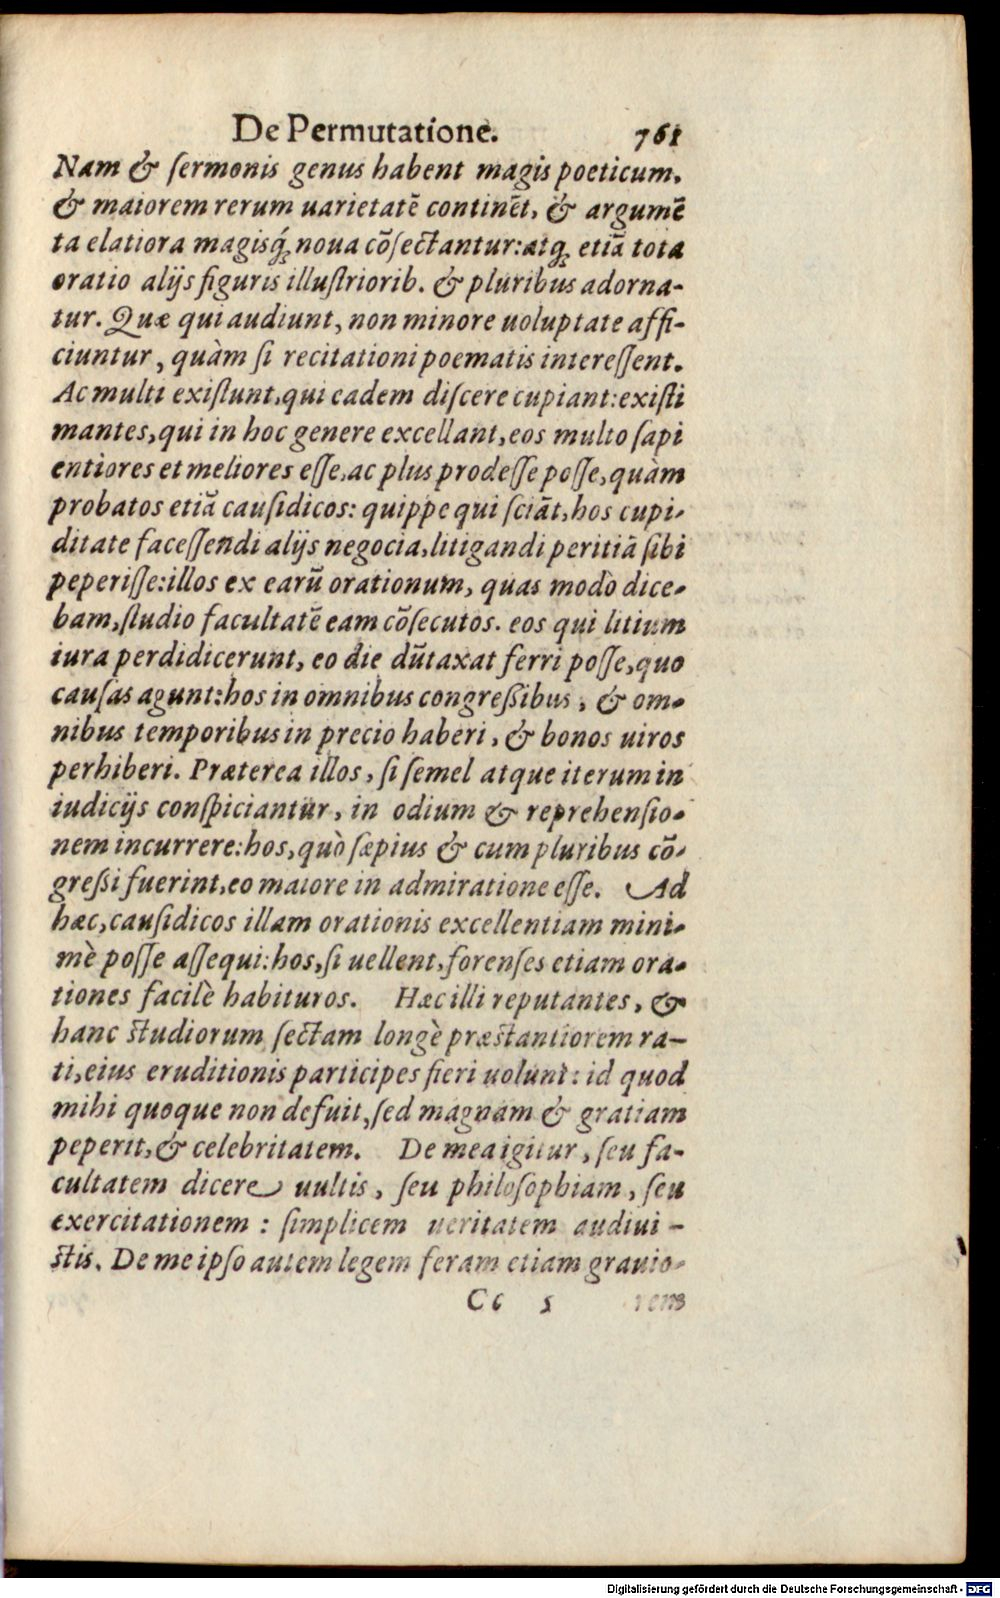 De Permutatione. 761
Nam & ſermonis genus habent magis poeticum,
& maiorem rerum uarietatē continēt, & argumē
ta elatiora magisq́; noua cōſectantur: atq; etiā tota
oratio alijs figuris illuſtriorib. & pluribus adorna-
tur. Quæ qui audiunt, non minore uoluptate affi-
ciuntur, quàm ſi recitationi poematis intereſſent.
Ac multi exiſtunt, qui eadem diſcere cupiant: exiſti
mantes, qui in hoc genere excellant, eos multo ſapi
entiores et meliores eſſe, ac plus prodeſſe poſſe, quàm
probatos etiā cauſidicos: quippe qui ſciāt, hos cupi-
ditate faceſſendi alijs negocia, litigandi peritiā ſibi
peperiſſe: illos ex earū orationum, quas modò dice-
bam, ſtudio facultatē eam cōſecutos. eos qui litium
iura perdidicerunt, eo die dūtaxat ferri poſſe, quo
cauſas agunt: hos in omnibus congreßibus, & om-
nibus temporibus in precio haberi, & bonos uiros
perhiberi. Præterea illos, ſi ſemel atque iterum in
iudicijs conſpiciantur, in odium & reprehenſio-
nem incurrere: hos, quò ſæpius & cum pluribus cō-
greßi fuerint, eo maiore in admiratione eſſe. Ad
hæc, cauſidicos illam orationis excellentiam mini-
mè poſſe aſſequi: hos, ſi uellent, forenſes etiam ora-
tiones facilè habituros. Hæc illi reputantes, &
hanc ſtudiorum ſectam longè præſtantiorem ra-
ti, eius eruditionis participes fieri uolunt: id quod
mihi quoque non defuit, ſed magnam & gratiam
peperit, & celebritatem. De mea igitur, ſeu fa-
cultatem dicere uultis, ſeu philoſophiam, ſeu
exercitationem: ſimplicem ueritatem audiui-
ſtis. De me ipſo autem legem feram etiam grauio-
Cc 5 rem
Digitalisierung gefördert durch die Deutsche Forschungsgemeinschaft - DFG